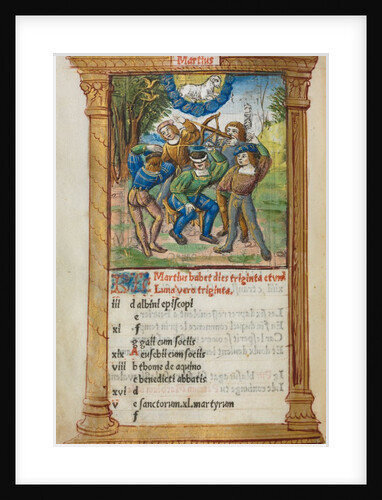 Martius
Martius habet dies triginta et vnū
Luna vero triginta.
iii d albini episcopi
e
xi f
g gaii cum sociis
xix A euschii cum sociis
viii b thome de aquino
c benedicti abbatis.
xvi d
v e sanctorum .xl. martyrum
f